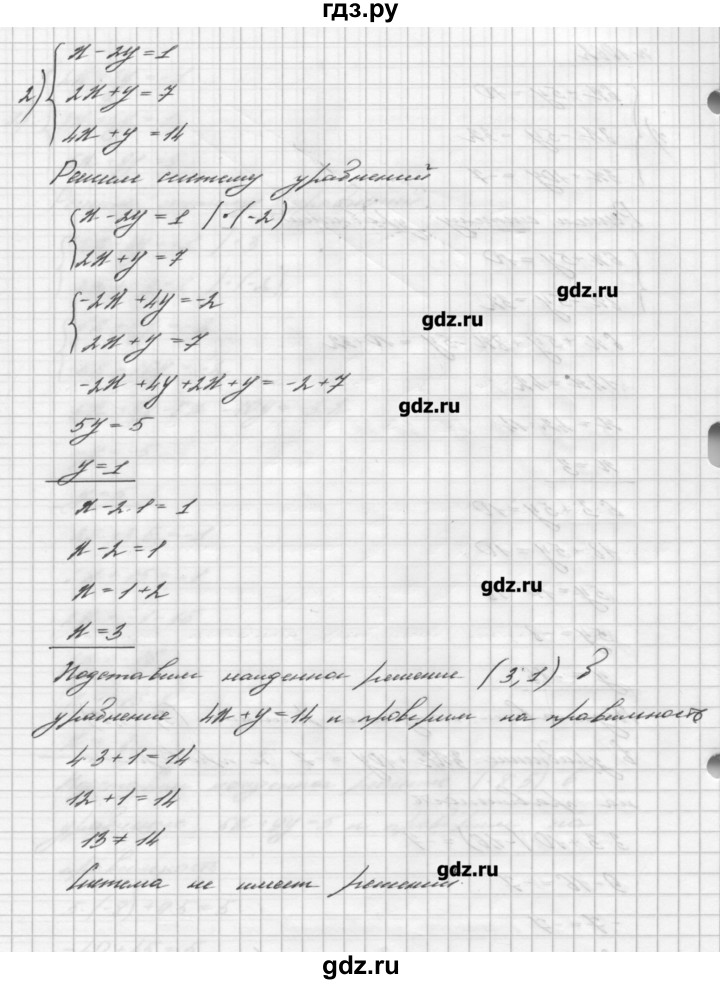 гдз.ру
2) { x - 2y = 1
2x + y = 7
4x + y = 14
Решим систему уравнений
{ x - 2y = 1 | · (-2)
2x + y = 7
{ -2x + 4y = -2
2x + y = 7
-2x + 4y + 2x + y = -2 + 7
5y = 5
y = 1
x - 2 · 1 = 1
x - 2 = 1
x = 1 + 2
x = 3
Подставим найденное решение (3; 1) в
уравнение 4x + y = 14 и проверим на правильность
4 · 3 + 1 = 14
12 + 1 = 14
13 ≠ 14
Система не имеет решений.
gdz.ru
gdz.ru
gdz.ru
gdz.ru
gdz.ru
gdz.ru